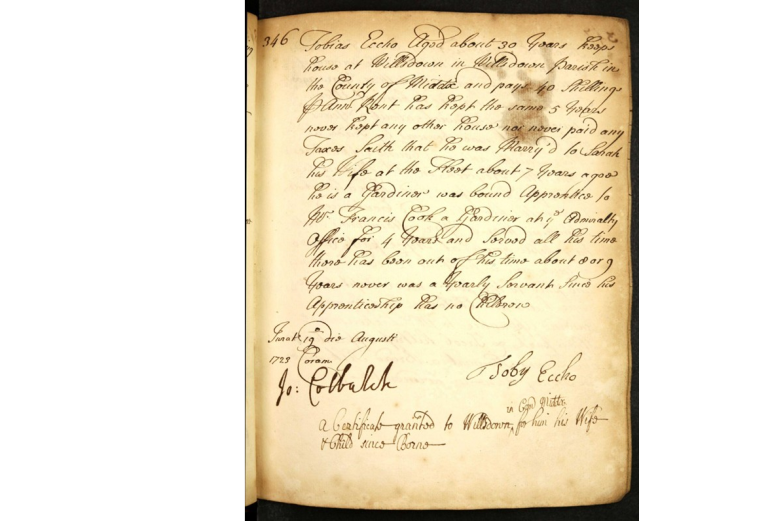 346
Tobias Eccho Aged about 30 Years keeps
house at Willsdown in Willsdown Parish in
the County of Middx and pays 40 Shillings
P Ann Rent has kept the same 5 Years
never kept any other house nor never paid any
Taxes Saith that he was Marry'd to Sarah
his Wife at the Fleet about 7 Years agoe
he is a Gardiner was bound Apprentice to
Mr. Francis Cook a Gardiner at ye Admiralty
Office for 4 Years and Served all his time
there has been out of his time about 8 or 9
Years never was a Yearly Servant Since his
Apprenticeship has no Children
Jurat 19o die Augusti
1723 Coram
Jo: Colbatch
Toby Eccho
a Certificate granted to Willsdown, in Com Middx, for him his Wife
& Child since Borne